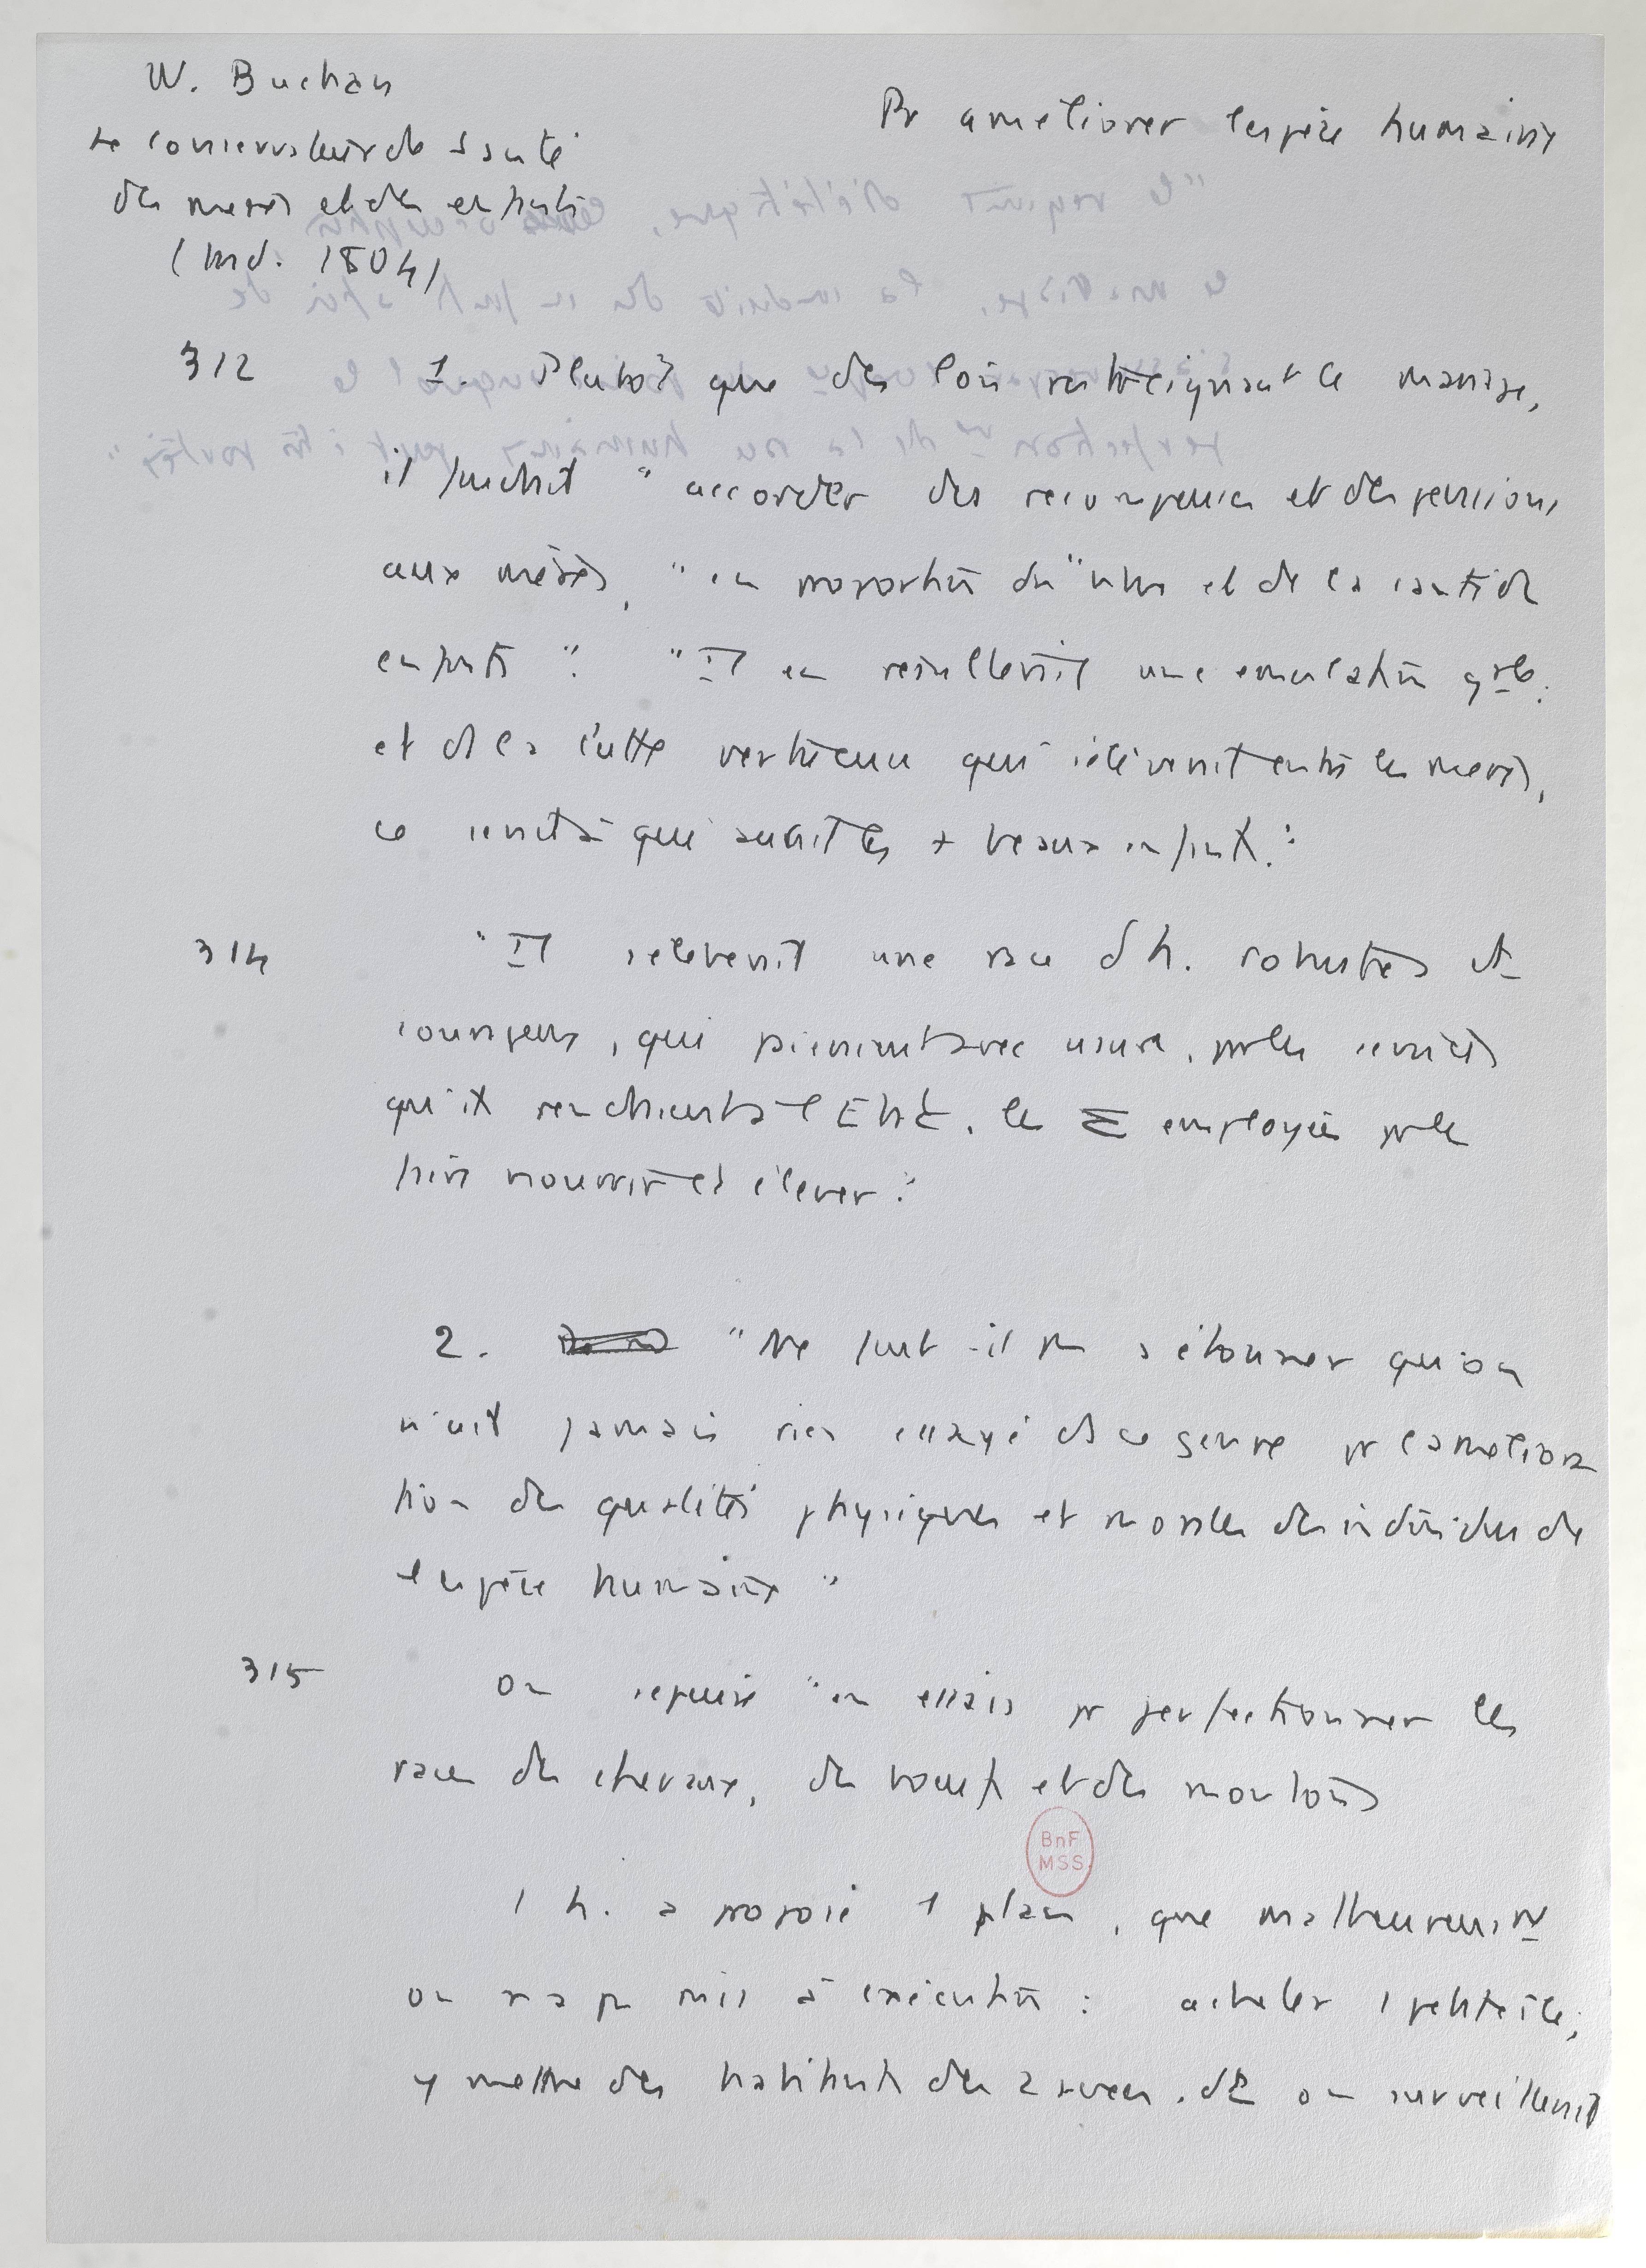 W. Buchan
Le conservateur de santé
des mères et des enfants
(trad. 1804)
Pr améliorer l'espèce humaine
312
1. Plutôt que des lois restreignant le mariage,
il faudrait "accorder des récompenses et des pensions
aux mères, "en proportion du" nbre et de la santé de
enfants". "Il en résulterait une émulation grale.
et de la lutte vertueuse qui s'élèverait entre les mères,
ce serait à qui aurait les + beaux enfants."
314
"Il s'élèverait une race d'h. robustes et
courageux, qui paieraient avec usure, pr les services
qu'ils rendraient à l'Etat, les Σ employées pr les
faire nourrir et élever."
2. "Ne faut-il pas s'étonner qu'on
n'ait jamais rien essayé de ce genre pr l'améliora
tion des qualités physiques et morales des individus de
l'espèce humaine"
315
On s'épuise "en essais pr perfectionner les
races des chevaux, des bœufs et des moutons
1 h. a proposé 1 plan, que malheureusnt
on n'a pas mis à exécution : acheter 1 petite île,
y mettre des habitants des 2 sexes, dt on surveillerait
BnF
MSS